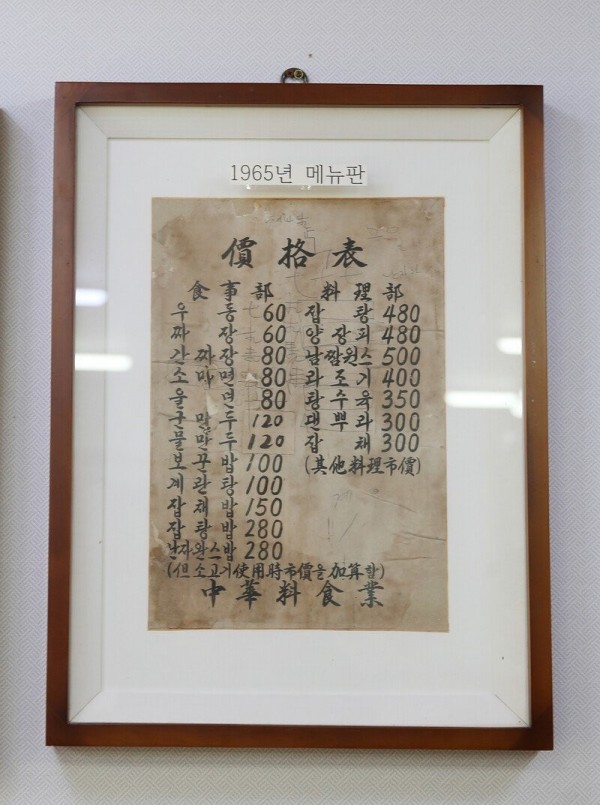 1965년 메뉴판
價格表
食事部
우동 60
짜장 60
간짜장 80
소마면 80
울면 80
군만두 120
물만두 120
보꾼밥 100
계란탕 100
잡채밥 150
잡탕밥 280
난자완스밥 280
(但 소고기使用時市價을 加算함)
料理部
잡탕 480
양장피 480
500
라조기 400
탕수육 350
댄뿌라 300
잡채 300
(其他料理市價)
中華料食業